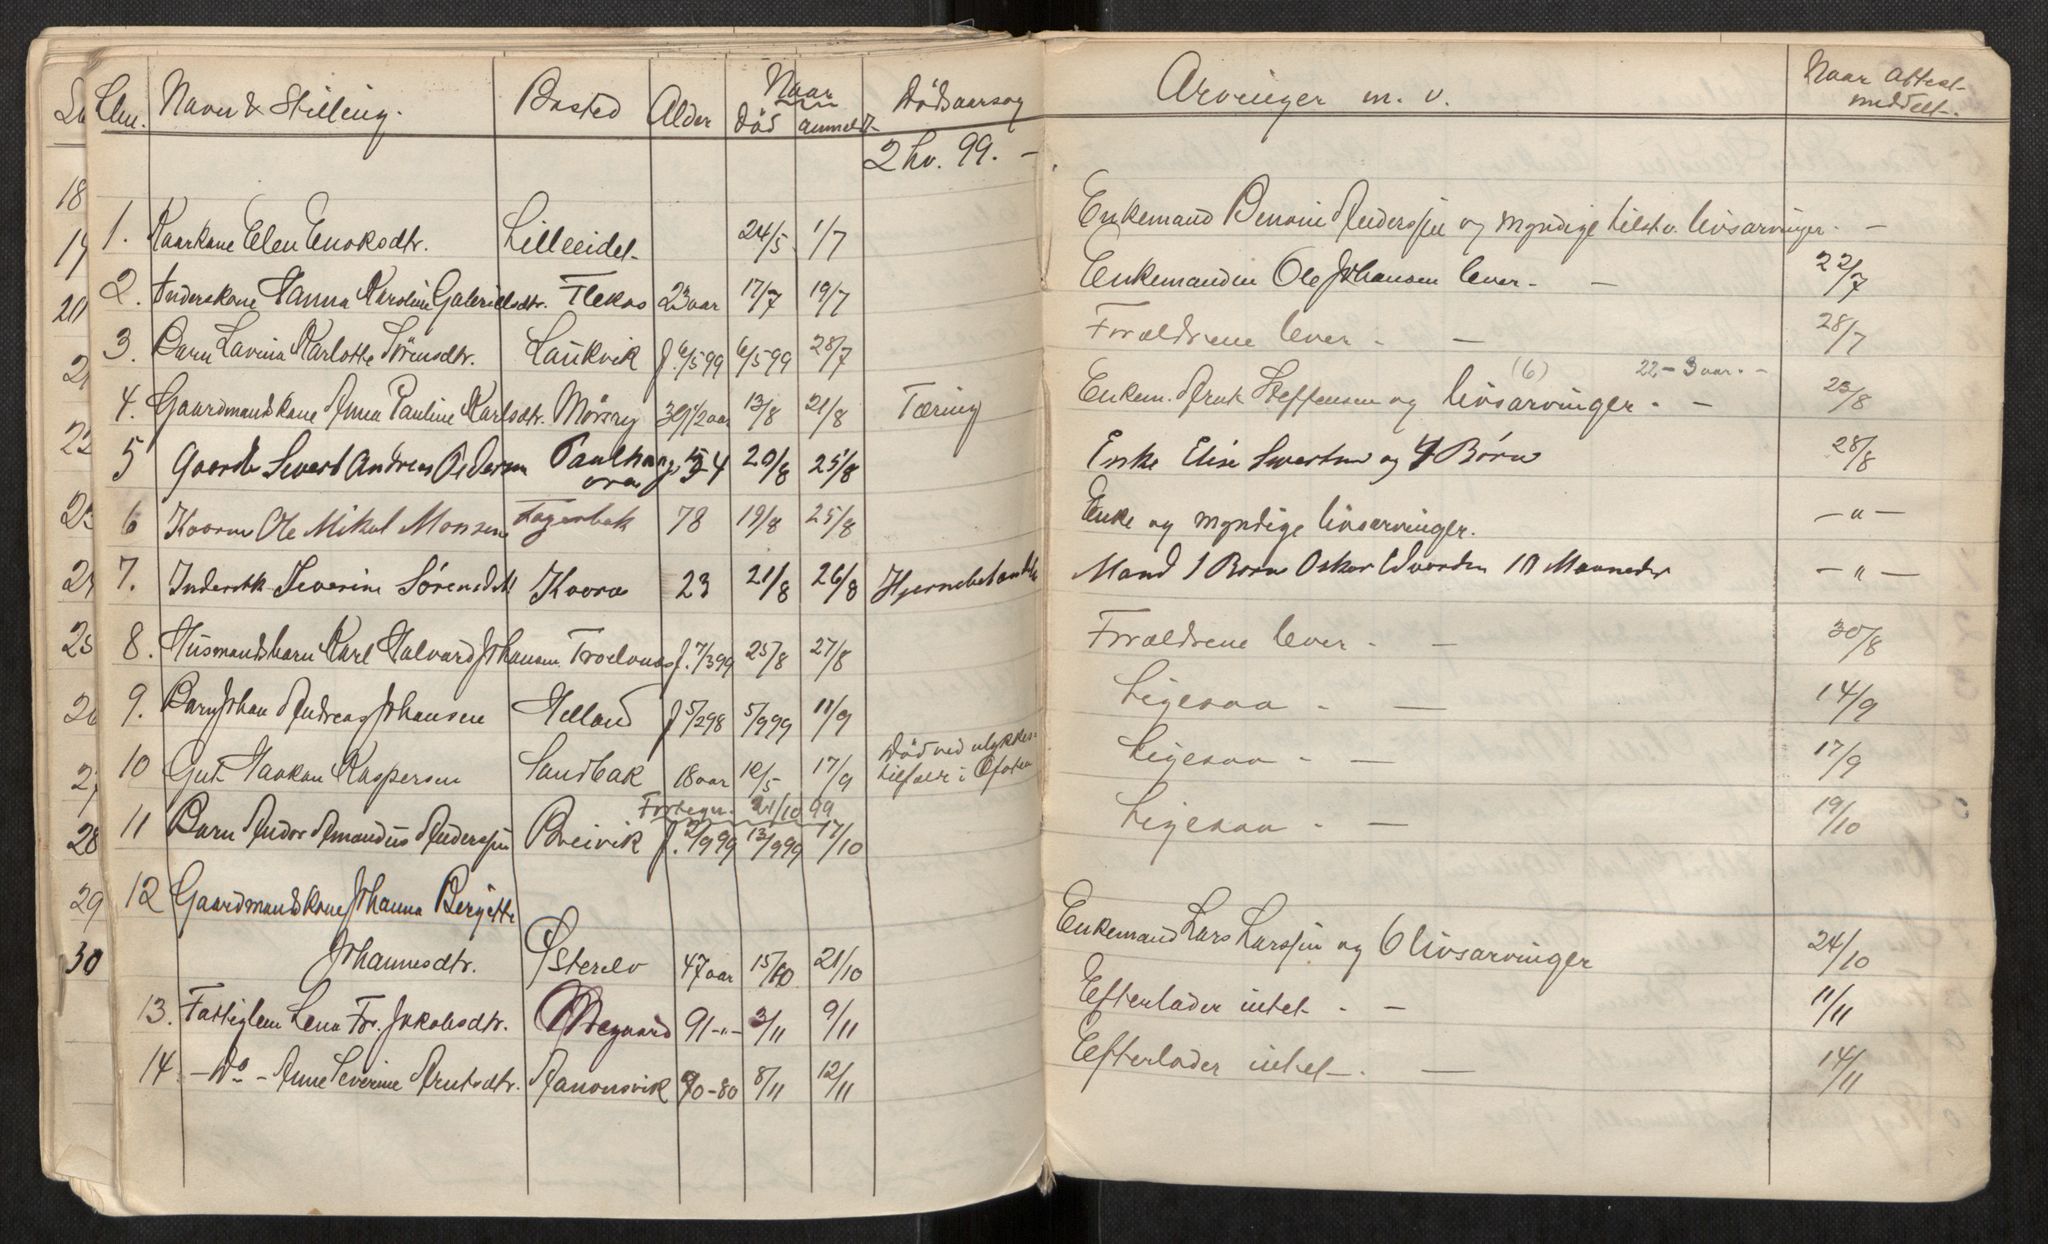 Lm. Navn & Stilling. Bosted Alder Naar død anmeldt Dødsaarsag Arvinger m. v. Naar Attest meddelt.
2 hv. 99. -
1. Kaarkone Elen Enoksdtr. Lilleeidet 24/5 1/7 Enkemand Benoni Anderssen og myndige tilstv. livsarvinger. -
2. Inderskone Hanna Karoline Gabrielsdtr. Fleknes 23 aar 17/7 19/7 Enkemanden Ole Johansen lever - - 22/7
3. Barn Lavina Karlotte Sørensdtr. Laukvik f. 6/5 99 6/5 99 28/7 Forældrene lever. - 28/7
4. Gaardmandskone Anna Pauline Karlsdtr. Mørsry 39 1/2 aar 13/8 21/8 Tæring Enkem. Arnt Steffensen og (6) livsarvinger. - 22-3 aar. - 23/8
5 Gaardbr Sivert Andreas Pedersen 20/8 25/8 Enke Elise Sivertsen og 4 Børn 28/8
6 Kaarm Ole Mikal Monsen Fagerbak 78 19/8 25/8 Enke og myndige livsarvinger. -"-
7. Inderstk. Severine Sørensdtt Kvoras 23 21/8 26/8 Hjernebetændelse Mand 1 Barn Oskar Edvardsen 10 Maaneder -"-
8. Husmandsbarn Karl Halvard Johansen. f. 7/3 99 25/8 27/8 Forældrene lever. - 30/8
9. Barn Johan Andreas Johansen Helland f 5/2 98 5/9 99 11/9 Ligesaa - - 14/9
10 Gut Haakon Kaspersen Sandbak 18 aar 12/5 17/9 Død ved ulykkes-
tilfælde i Ofoten Ligesaa - - 17/9
Forlegn. 21/10 99
11 Barn Andor Amandus Anderssen Breivik f. 2/9 99 13/9 99 17/10 Ligesaa - - 19/10
12 Gaardmandskone Johanna Bergitte
Johannesdtr. Østerelv 47 aar 15/10 21/10 Enkemand Lars Larssen og 6 livsarvinger 24/10
13. Fattiglem Lena Fr. Jakobsdtr. 91 -"- 3/11 9/11 Efterlader intet - - 11/11
14 - Do - Ane Severine Arntsdtr. 70-80 8/11 12/11 Efterlader intet - . - 14/11
18
19
20
21
22
23
24
25
26
27
28
29
30